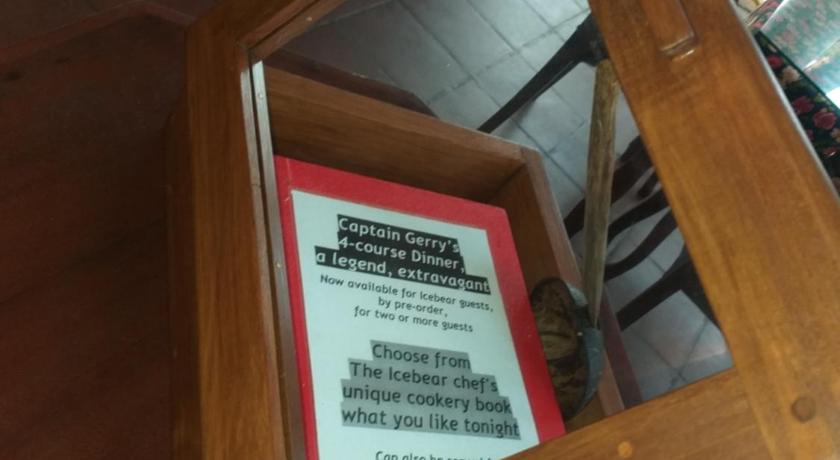 Captain Gerry's
4-course Dinner,
a legend, extravagant
Now available for Icebear guests,
by pre-order,
for two or more guests
Choose from
The Icebear chef's
unique cookery book
what you like tonight
Can also be